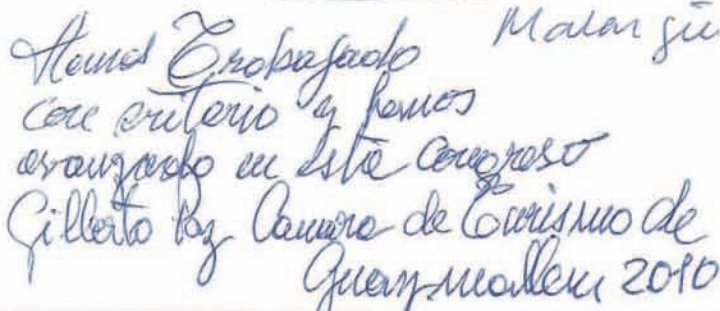 Malargüe
Hemos Trabajado
con criterio y hemos
avanzado en este Congreso
Gilberto Paz Camara de Turismo de
Guaymallen 2010